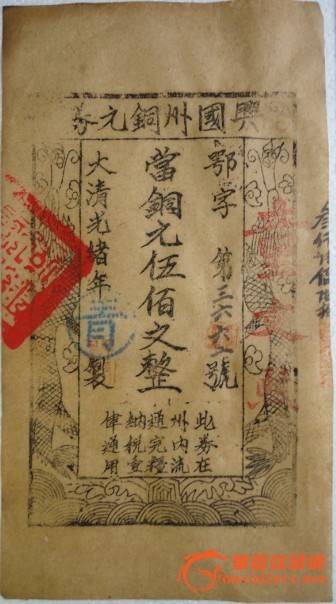 興國州銅元券
鄂字 第三六六號
當銅元伍佰文整
大清光緒年製
此券在
州内流
通完糧
納税壹
律通用